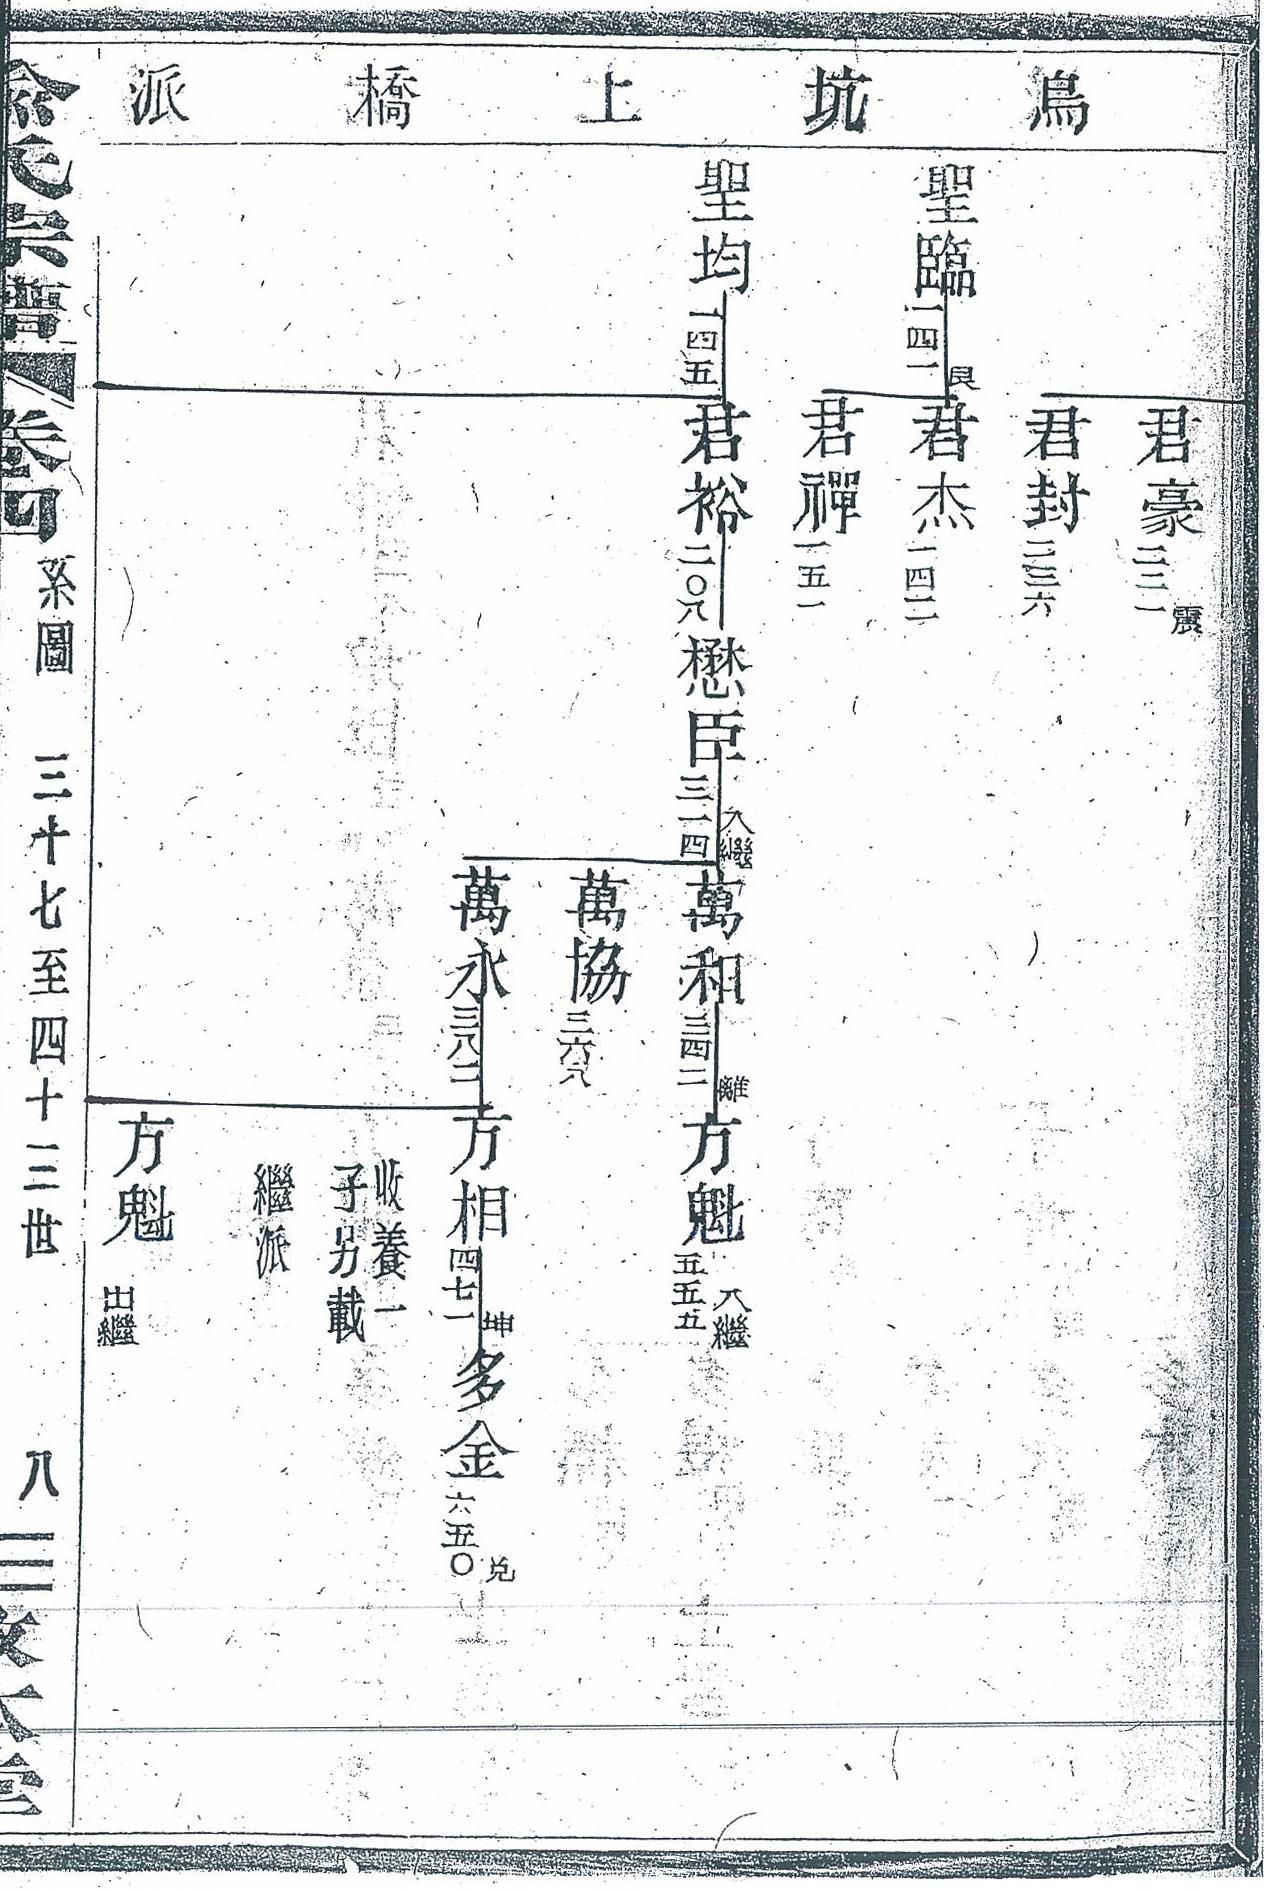 鳥坑上橋派
聖臨
一四一
艮
聖均
一四五
君豪
二二一
震
君封
二三六
君杰
一四二
君禪
一五一
君裕
二〇八
懋臣
三一四
入繼
萬和
三四二
離
萬協
三六八
萬永
三八二
方魁
五五五
入繼
方相
四七一
坤
收養一
子另載
繼派
方魁
出繼
多金
六五〇
兌
俞氏宗譜
卷四
系圖
三十七至四十二世
八
三
堂